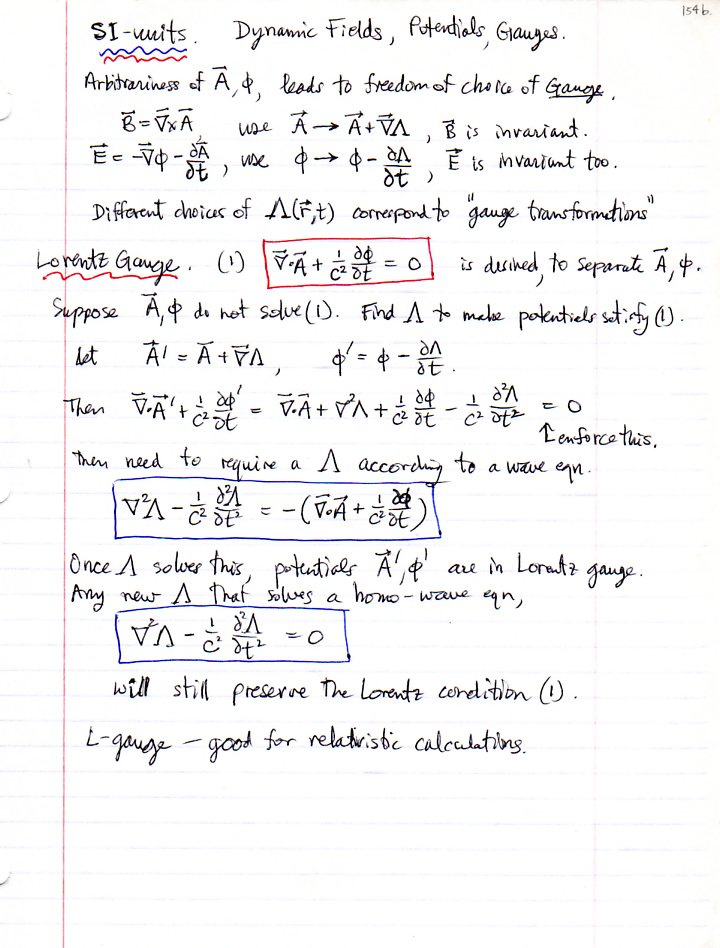 154b.
SI-units. Dynamic Fields, Potentials, Gauges.
Arbitrariness of A⃗, φ, leads to freedom of choice of Gauge.
B⃗ = ∇⃗×A⃗, use A⃗ → A⃗ + ∇⃗Λ, B⃗ is invariant.
E⃗ = -∇⃗φ - ∂A⃗/∂t, use φ → φ - ∂Λ/∂t, E⃗ is invariant too.
Different choices of Λ(r⃗,t) correspond to "gauge transformations"
Lorentz Gauge. (1) ∇⃗·A⃗ + 1/c² ∂φ/∂t = 0 is desired, to separate A⃗, φ.
Suppose A⃗, φ do not solve (1). Find Λ to make potentials satisfy (1).
Let A⃗' = A⃗ + ∇⃗Λ, φ' = φ - ∂Λ/∂t.
Then ∇⃗·A⃗' + 1/c² ∂φ'/∂t = ∇⃗·A⃗ + ∇²Λ + 1/c² ∂φ/∂t - 1/c² ∂²Λ/∂t² = 0
↑ enforce this.
Then need to require a Λ according to a wave eqn.
∇²Λ - 1/c² ∂²Λ/∂t² = -(∇⃗·A⃗ + 1/c² ∂φ/∂t)
Once Λ solves this, potentials A⃗', φ' are in Lorentz gauge.
Any new Λ that solves a homo-wave eqn,
∇²Λ - 1/c² ∂²Λ/∂t² = 0
will still preserve the Lorentz condition (1).
L-gauge — good for relativistic calculations.